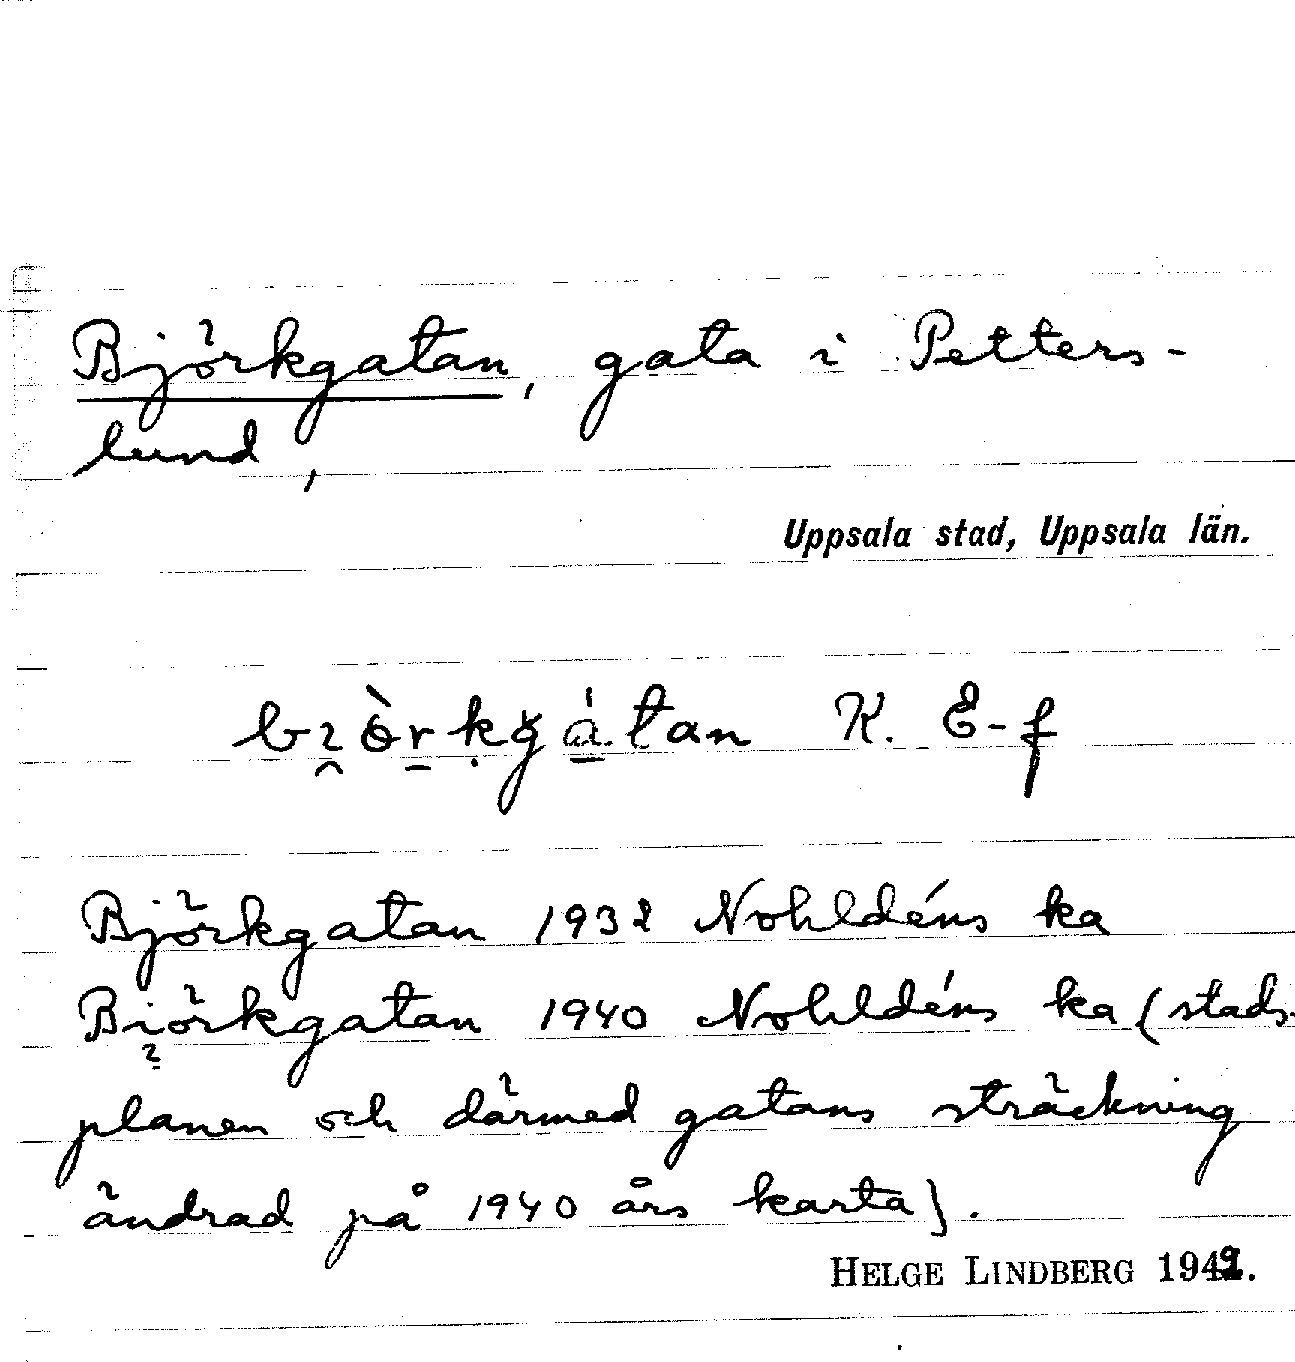 Björkgatan, gata i Petters-
lund,
Uppsala stad, Uppsala län.
K. E-f
Björkgatan 1932 Nohldéns ka
Biörkgatan 1940 Nohldéns ka (stads-
planen och därmed gatans sträckning
ändrad på 1940 års karta).
HELGE LINDBERG 1949.